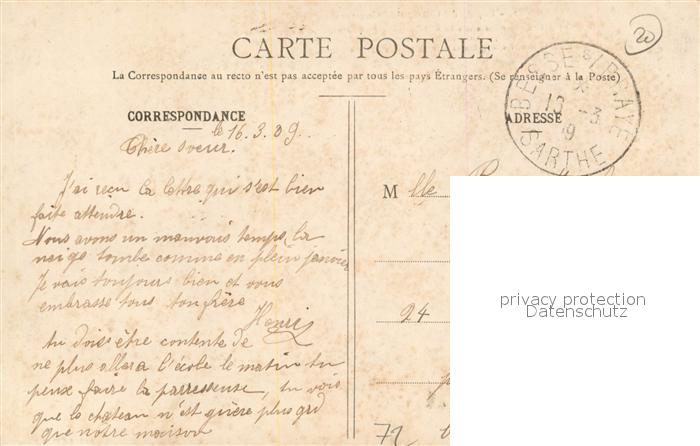 20
CARTE POSTALE
La Correspondance au recto n'est pas acceptée par tous les pays Étrangers. (Se renseigner à la Poste)
BESSE S/BRAYE
16 -3
09
SARTHE
CORRESPONDANCE
ADRESSE
le 16.3.09.
Chère soeur.
J'ai reçu la lettre qui s'est bien
faite attendre.
Nous avons un mauvais temps, la
neige tombe comme en plein janvier
Je vais toujours bien et vous
embrasse tous ton frère
Henri
tu dois être contente de
ne plus aller a l'école le matin tu
peux faire la parresseuse, tu vois
que le chateau n'est guère plus grd
que notre maison
Mlle
24
72
privacy protection
Datenschutz